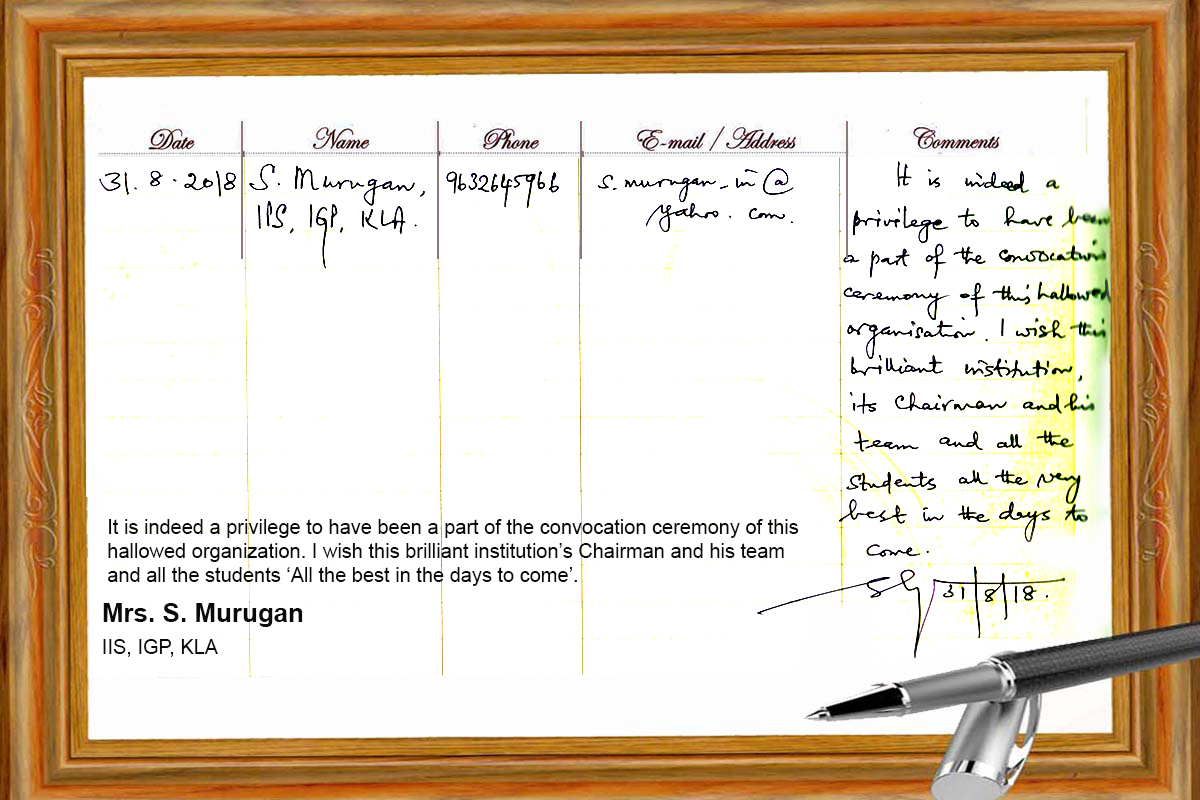 Date Name Phone E-mail / Address Comments
31. 8. 2018 S. Murugan, 9632645966 s.murugan_in@
IPS, IGP, KLA. yahoo.com.
It is indeed a
privilege to have been
a part of the convocation
ceremony of this hallowed
organisation. I wish this
brilliant institution,
its Chairman and his
team and all the
students all the very
best in the days to
come.
31/8/18.
It is indeed a privilege to have been a part of the convocation ceremony of this
hallowed organization. I wish this brilliant institution’s Chairman and his team
and all the students ‘All the best in the days to come’.
Mrs. S. Murugan
IIS, IGP, KLA